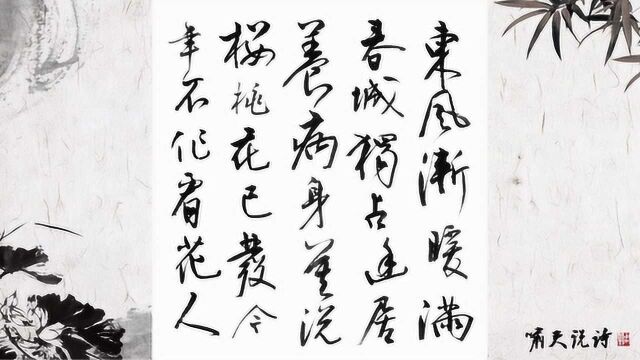 東風漸暖滿
春城獨占幽居
養病身莫説
櫻桃花已發今
年不作看花人
嘯天说诗